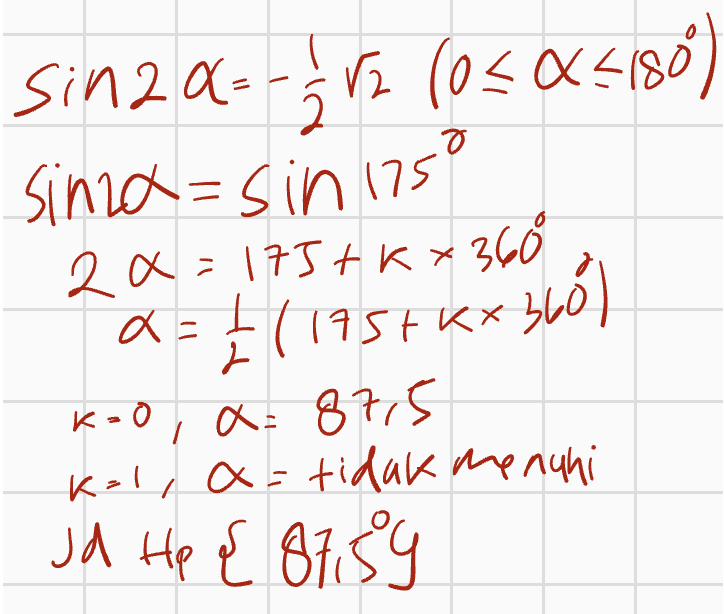 sin2α = -1/2 √2 (0 ≤ α ≤ 180°)
sin2α = sin 175°
2α = 175 + k × 360°
α = 1/2 (175 + k × 360°)
k = 0, α = 87,5
k = 1, α = tidak menuhi
Jd Hp { 87,5° }